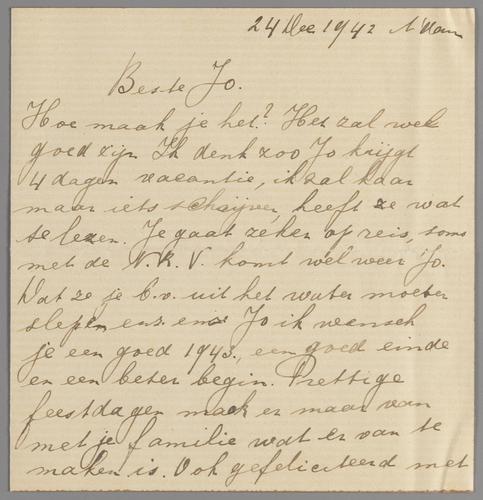 24 Dec 1942 A'dam
Beste Jo.
Hoe maak je het? Het zal wel
goed zijn. Ik denk zoo Jo krijgt
4 dagen vacantie, ik zal haar
maar iets schrijven, heeft ze wat
te lezen. Je gaat zeker op reis, soms
met de N.R.V. komt wel weer Jo.
Dat ze je b.v. uit het water moeten
slepen enz. enz Jo ik wensch
je een goed 1943., een goed einde
en een beter begin. Prettige
feestdagen maak er maar van
met je familie wat er van te
maken is. Ook gefeliciteerd met